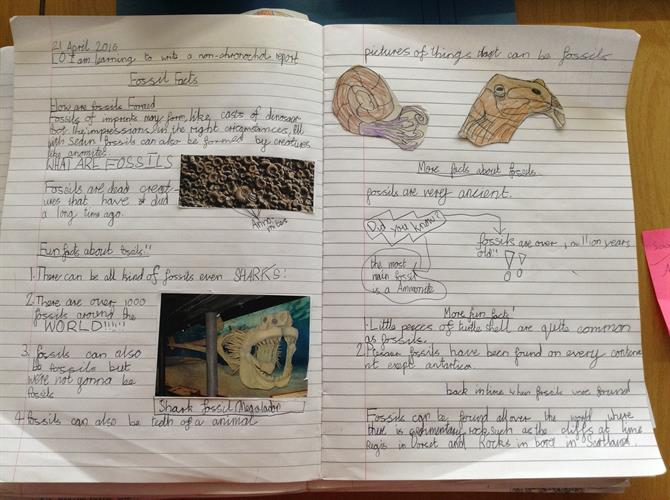 21 April 2016
LO I am learning to write a non-chronochol report
Fossil Facts
How are fossils Formed
Fossils of imprints may form, like casts of dinosaur
the impressions, in the right circumstances, fill
with fossils can also be formed by creatures
like
WHAT ARE FOSSILS
Fossils are dead creat-
ures that have died
a long time ago.
Fun facts about fossils!!
1. There can be all kind of fossils even SHARKS!
2. There are over 1000
fossils around the
WORLD!!!!!!
3. fossils can also
be fossils but
were not gonna be
fossils
Shark fossil Megaladon
4. fossils can also be teeth of a animal
pictures of things that can be fossils
More facts about fossils
fossils are very ancient.
Did you know?
fossils are over 1 million years
old!!
the most
main fossil
is a Ammonite
More fun facts!
1. Little peaces of turtle shell are quite common
as fossils.
2. fossils have been found on every contene
nt exept antatica.
back in time when fossils was found
Fossils can be found all over the world where
there is sedimentary rock, such as the cliffs at Lime
Regis in Dorset and Rocks in in Scotland.